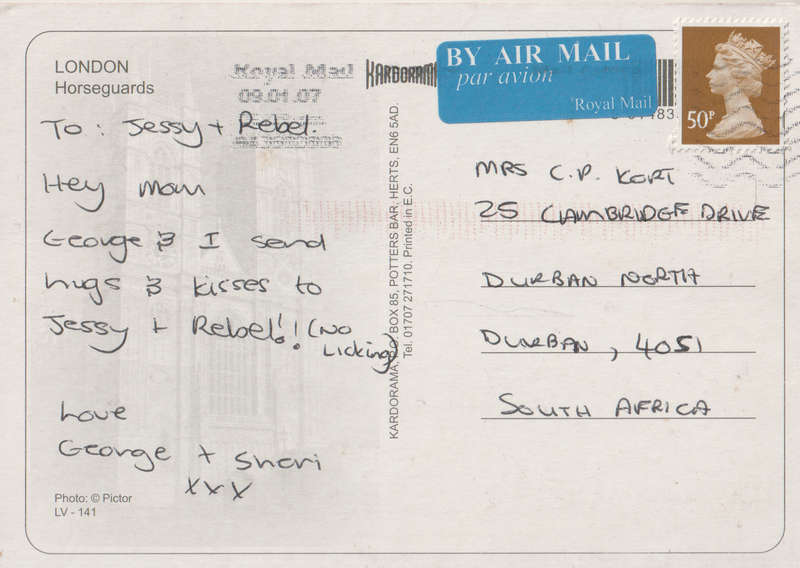 LONDON
Horseguards
To: Jessy + Rebel.
Hey Mom
George & I send
hugs & kisses to
Jessy + Rebel!! (No
Licking)
Love
George + Sheri
xxx
Photo: © Pictor
LV - 141
Royal Mail
09.01.07
KARDORAMA
KARDORAMA, P.O. BOX 85, POTTERS BAR, HERTS, EN6 5AD.
Tel. 01707 271710. Printed in E.C.
BY AIR MAIL
par avion
Royal Mail
50P
MRS C.P. KORT
25 CAMBRIDGE DRIVE
DURBAN NORTH
DURBAN, 4051
SOUTH AFRICA